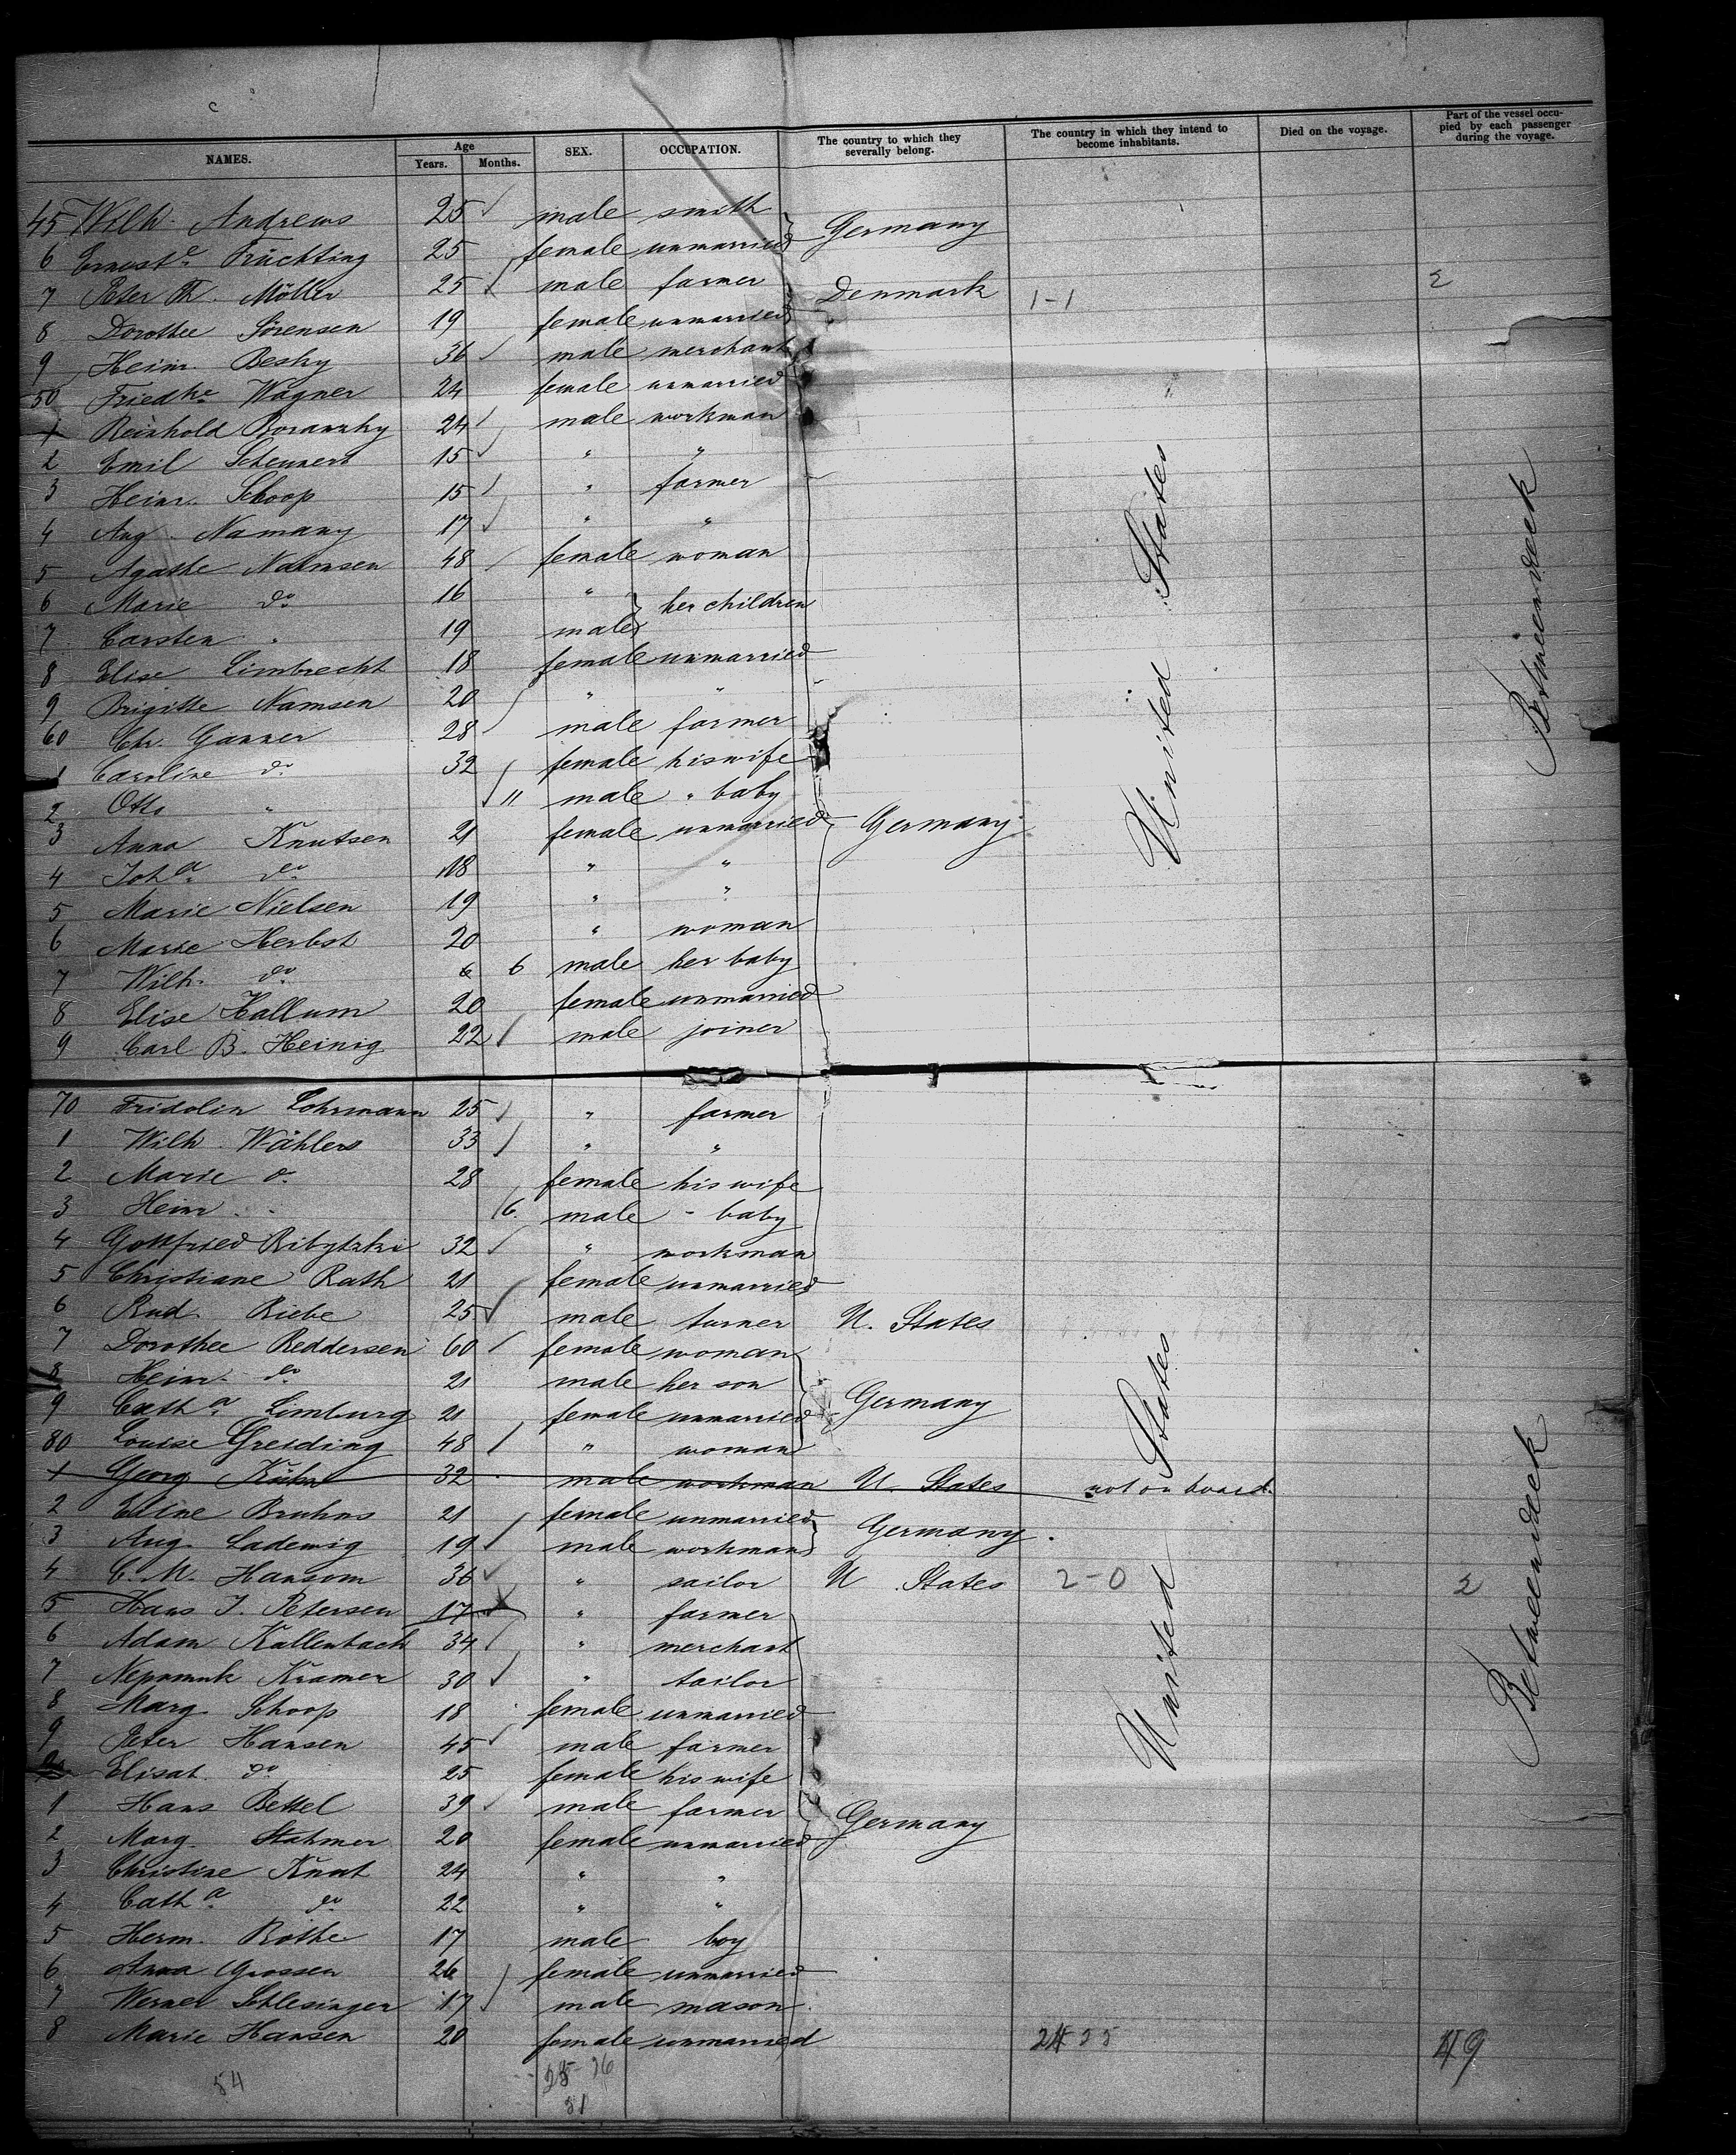 NAMES. Age Years. Months. SEX. OCCUPATION. The country to which they severally belong. The country in which they intend to become inhabitants. Died on the voyage. Part of the vessel occupied by each passenger during the voyage.
45 Wilh. Andrews 25 male smith
6 Ernest^e Früchting 25 female unmarried Germany
7 Peter Th. Möller 25 male farmer Denmark 1-1 2
8 Dorothee Sörensen 19 female unmarried
9 Heinr. Besky 36 male merchant
50 Friedke Wagner 24 female unmarried
1 Reinhold 24 male workman
2 Emil Scheunert 15 " "
3 Heinr. Schoop 15 " farmer
4 Aug. Namany 17 " "
5 Agathe Namsen 48 female woman
6 Marie do 16 " her children
7 Carsten " 19 male
8 Elise Limbrecht 18 female unmarried
9 Brigitte Namsen 20 " "
60 Chr. Ganner 28 male farmer
1 Caroline do 32 female his wife
2 Otto " 11 male " baby
3 Anna Knutsen 21 female unmarried Germany
4 Joh^a do 18 " "
5 Marie Nielsen 19 " "
6 Marie Herbst 20 " woman
7 Wilh. do 6 male her baby
8 Elise Hallum 20 female unmarried
9 Carl B. Heinig 22 male joiner
United States
Betweendeck
70 Fridolin Lohrmann 25 " farmer
1 Wilh. Wählers 33 " "
2 Marie do 28 female his wife
3 Heinr. " 6 male " baby
4 Gottfried Ribytzki 32 " workman
5 Christiane Rath 21 female unmarried
6 Rud. Riebe 25 male turner U. States
7 Dorothee Reddersen 60 female woman
8 Heinr. do 21 male her son
9 Cath^a Limburg 21 female unmarried Germany
80 Louise Greiding 48 " woman
1 Georg Kühn 32 male workman U. States not on board.
2 Eline Bruhns 21 female unmarried
3 Aug. Ladewig 19 male workman Germany.
4 C. M. Hansom 36 " sailor U. States 2-0 2
5 Hans J. Petersen 17 " farmer
6 Adam Kallenbach 34 " merchant
7 Nepomuk Kramer 30 " tailor
8 Marg. Schoop 18 female unmarried
9 Peter Hansen 45 male farmer
90 Elisab. do 25 female his wife
1 Hans Bettel 39 male farmer Germany
2 Marg. Stahmer 20 female unmarried
3 Christine Knut 24 " "
4 Cath^a do 22 " "
5 Herm. Rothe 17 male boy
6 Anna Grossen 26 female unmarried
7 Werner Schlesinger 17 male mason
8 Marie Hansen 20 female unmarried
United States
Betweendeck
54 26 31 25 49